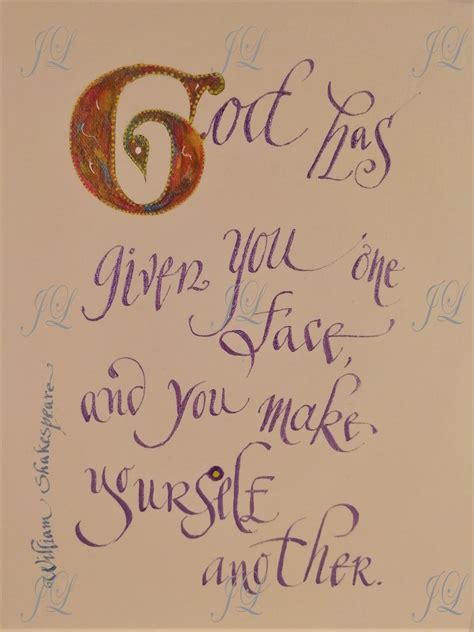 God has
given you one
face,
and you make
yourself
another.
William Shakespeare
JL JL JL
JL JL JL
JL JL JL
JL JL JL